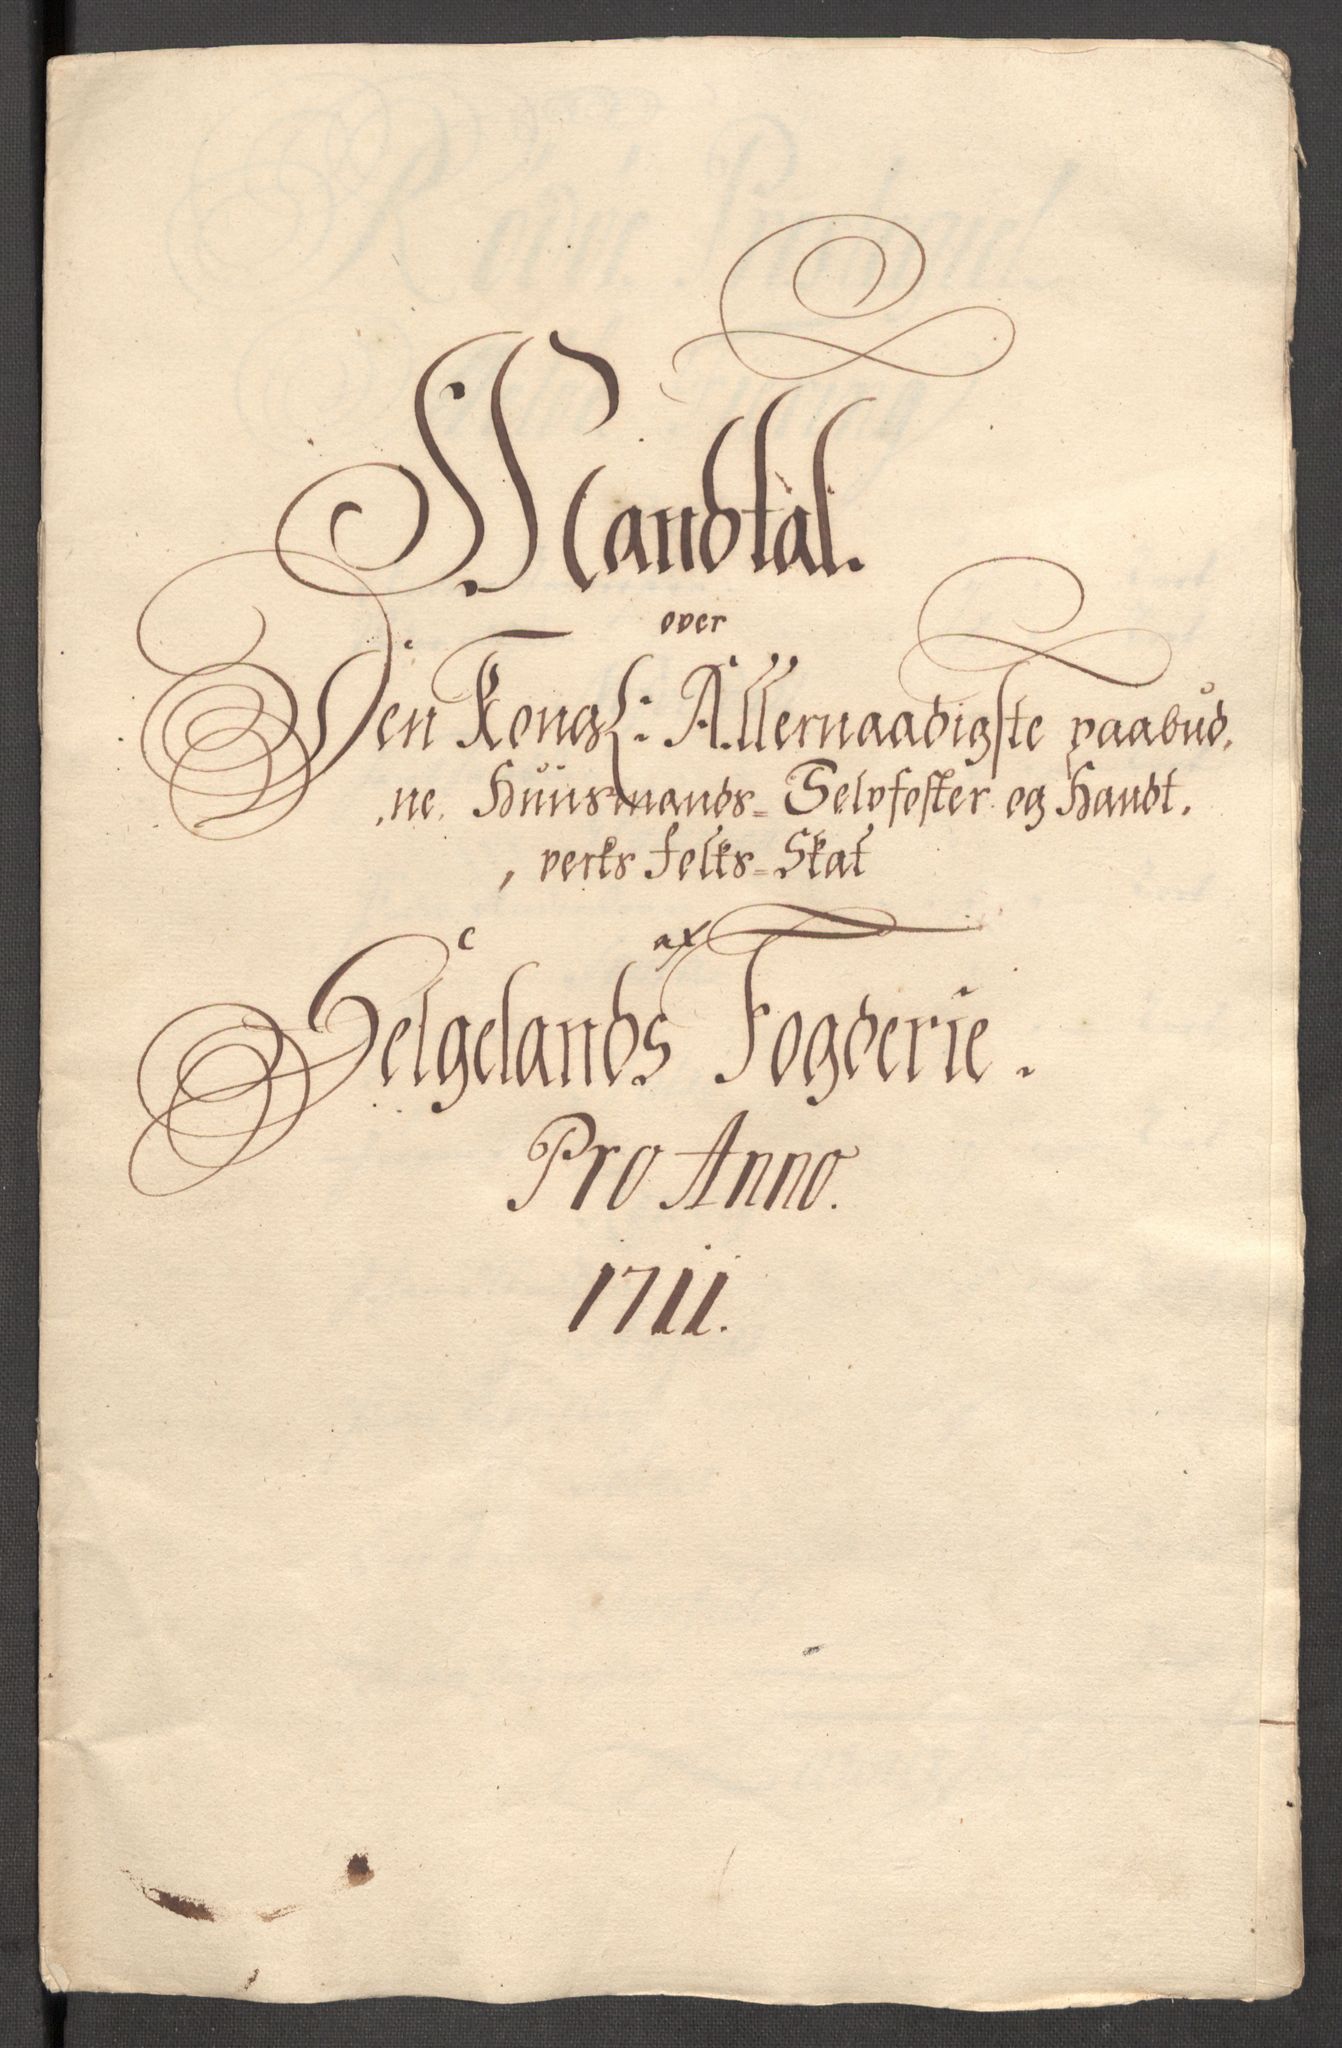 Mandtal.
over
Den Kongl: Allernaadigste paabud,
,ne, Huusmands- Selvfoster og Handt,
, verks folks-Skat
af
Helgelands Fogderie.
Pro Anno.
1711.